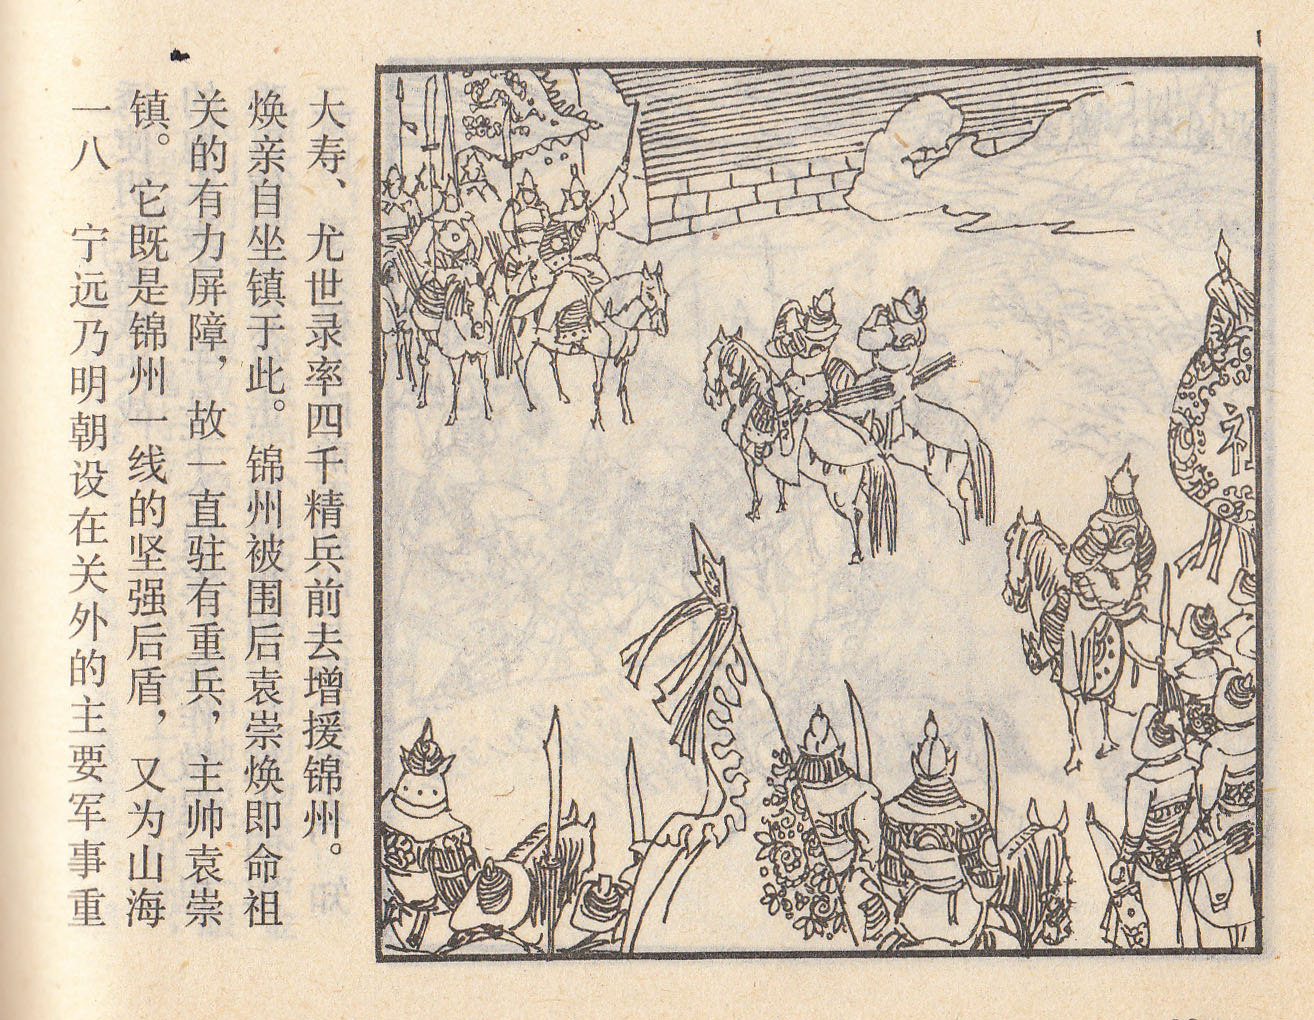 一八 宁远乃明朝设在关外的主要军事重
镇。它既是锦州一线的坚强后盾，又为山海
关的有力屏障，故一直驻有重兵，主帅袁崇
焕亲自坐镇于此。锦州被围后袁崇焕即命祖
大寿、尤世录率四千精兵前去增援锦州。